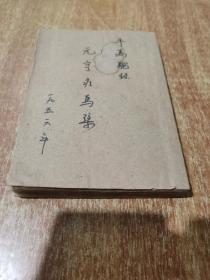 牛馬駝經
元亨疗馬集
一九五六年